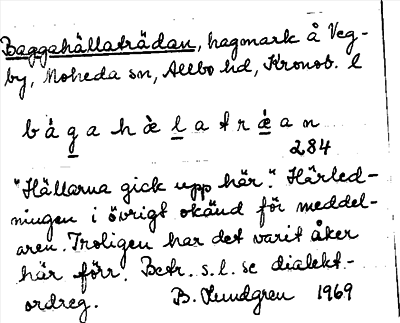 Baggahällaträdan, hagmark å Veg-
by, Moheda sn, Allbo hd, Kronob. l
b å g a h æ̀ l a t r ǽ a n
284
"Hällarna gick upp här". Härled-
ningen i övrigt okänd för meddel-
aren. Troligen har det varit åker
här förr. Betr. s. l. se dialekt-
ordreg. B. Lundgren 1969